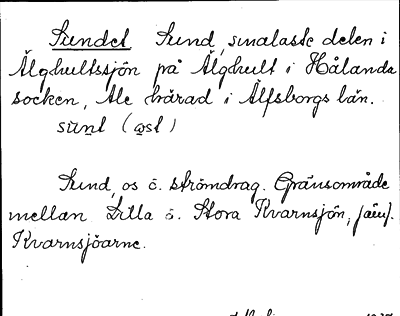 Sundet Sund, smalaste delen i
Älghultssjön på Älghult i Hålanda
socken, Ale härad i Älfsborgs län.
sŭnt (ost)
Sund, os o. strömdrag. Gränsområde
mellan Lilla o. Stora Kvarnsjön, jämf.
Kvarnsjöarne.